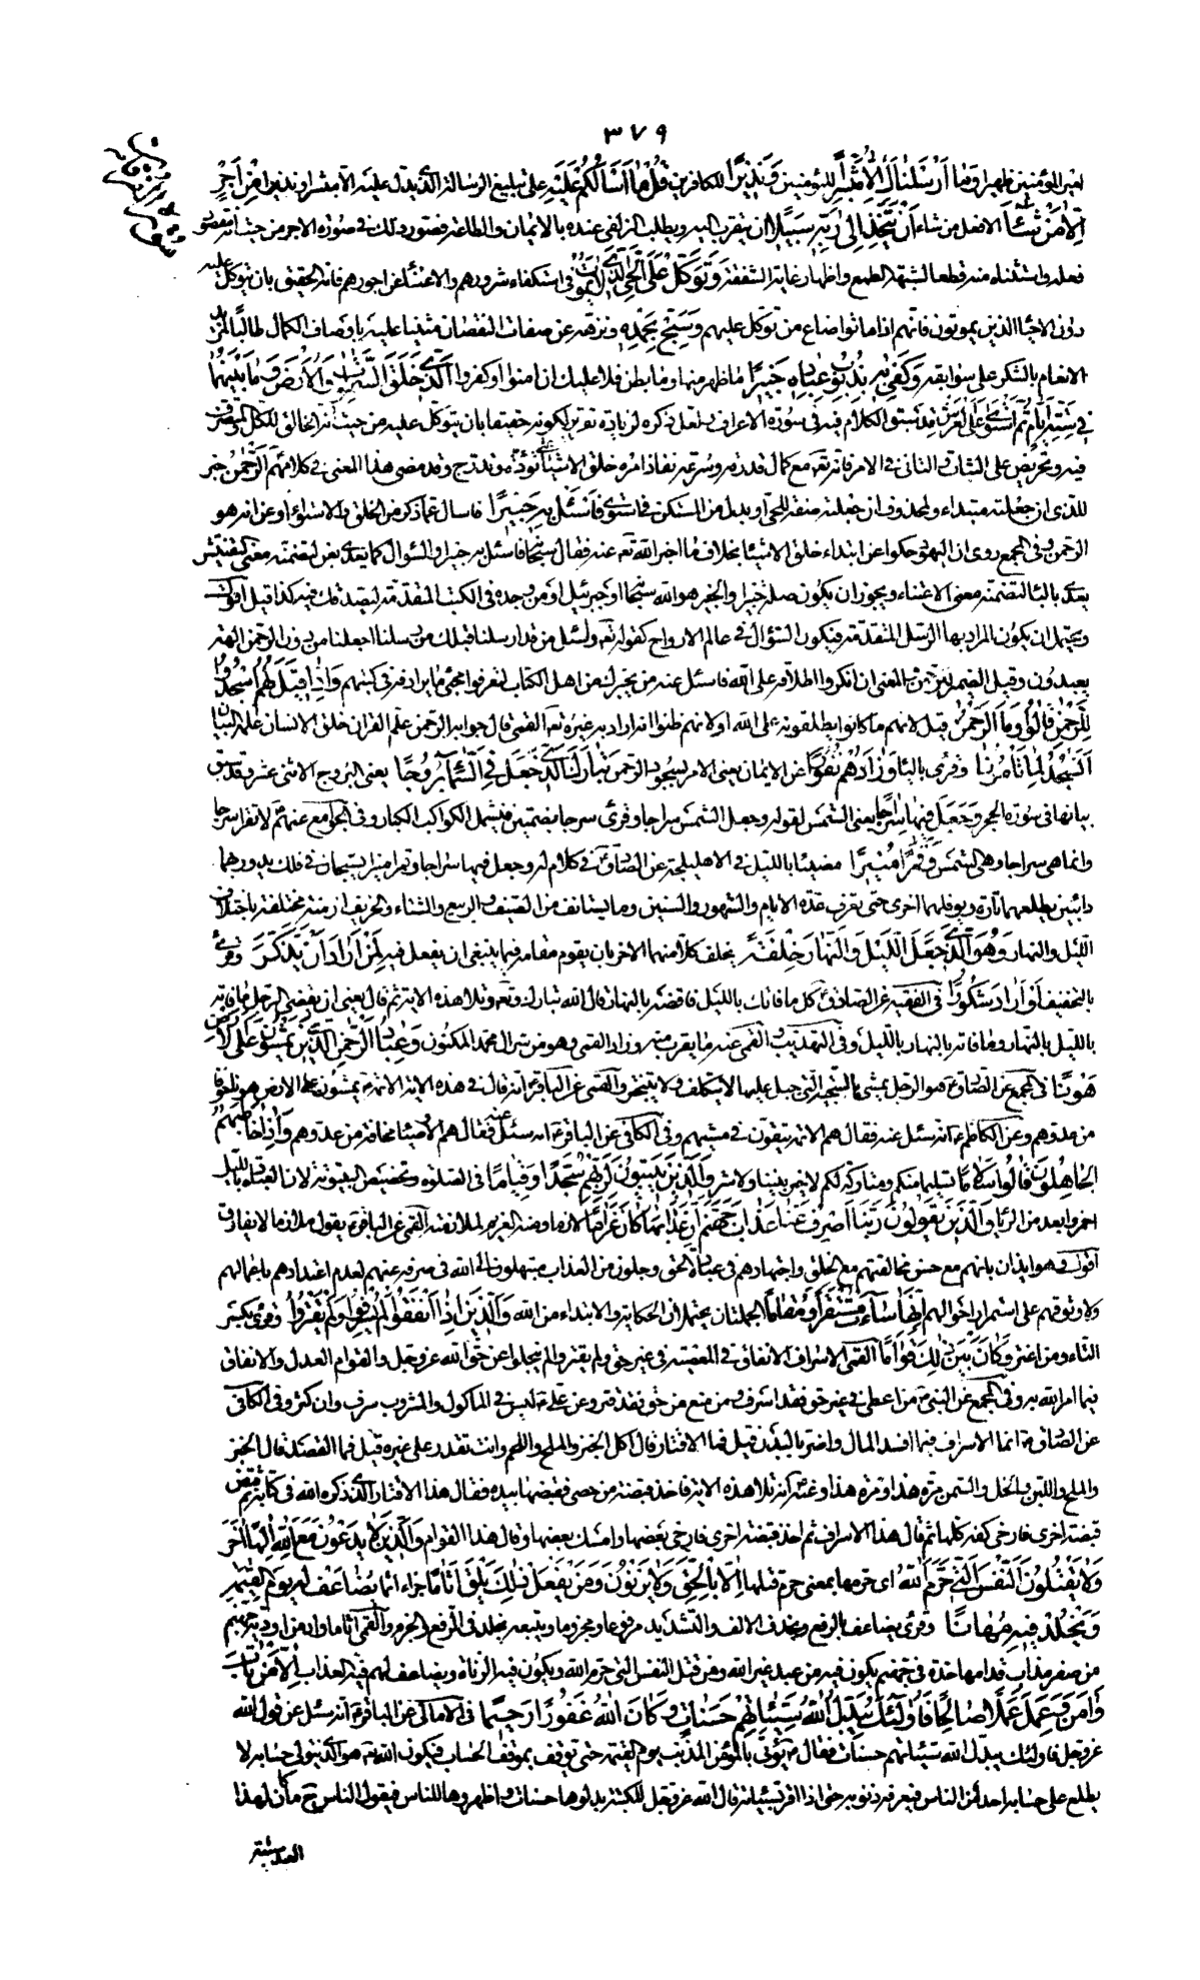 ٣٧٩
لغير المؤمنين ظهيرا وَمَا أَرْسَلْنَاكَ إِلَّا مُبَشِّرًا للمؤمنين وَنَذِيرًا للكافرين قُلْ مَا أَسْأَلُكُمْ عَلَيْهِ على تبليغ الرسالة الذي يدل عليه الا مبشرا ونذيرا مِنْ أَجْرٍ
إِلَّا مَنْ شَاءَ الا فعل من شاء أَنْ يَتَّخِذَ إِلَى رَبِّهِ سَبِيلًا ان يتقرب اليه ويطلب الزلفى عنده بالايمان والطاعة فصور ذلك في صورة الاجر من حيث انه مقصود
فعله واستثناه منه قطعا لشبهة الطمع واظهارا لغاية الشفقة وَتَوَكَّلْ عَلَى الْحَيِّ الَّذِي لَا يَمُوتُ في استكفاء شرورهم والاغناء عن اجورهم فانه الحقيق بان يتوكل عليه
دون الاحياء الذين يموتون فانهم اذا ماتوا ضاع من توكل عليهم وَسَبِّحْ بِحَمْدِهِ ونزهه عن صفات النقصان مثنيا عليه باوصاف الكمال طالبا لمزيد
الانعام بالشكر على سوابقه وَكَفَى بِهِ بِذُنُوبِ عِبَادِهِ خَبِيرًا ما ظهر منها وما بطن فلا عليك ان امنوا او كفروا الَّذِي خَلَقَ السَّمَوَاتِ وَالْأَرْضَ وَمَا بَيْنَهُمَا
فِي سِتَّةِ أَيَّامٍ ثُمَّ اسْتَوَى عَلَى الْعَرْشِ قد سبق الكلام فيه في سورة الاعراف ولعل ذكره لزيادة تقرير لكونه حقيقا بان يتوكل عليه من حيث انه الخالق للكل والمتصرف
فيه وتحريص على الثبات والتاني في الامر فانه تعم مع كمال قدرته وسرعة نفاذ امره خلق الاشياء على تؤدة وتدرج وقد مضى هذا المعنى في كلامهم الرَّحْمَنُ خبر
للذي ان جعلته مبتداء ولمحذوف ان جعلته صفة للحي او بدل من المستكن في استوى فَاسْأَلْ بِهِ خَبِيرًا فاسال عما ذكر من الخلق والاستواء او عن انه هو
الرحمن وفي المجمع روى ان اليهود حكوا عن ابتداء خلق الاشياء بخلاف ما اخبر الله تعم عنه فقال سبحانه فاسئل به خبيرا والسؤال كما يعدى بعن لتضمنه معنى التفتيش
يعدى بالباء لتضمنه معنى الاعتناء ويجوز ان يكون صلة خبيرا والخبير هو الله سبحانه او جبرئيل او من وجده في الكتب المتقدمة ليصدقك فيه كذا قيل اقول
ويحتمل ان يكون المراد بها الرسل المتقدمة فيكون السؤال في عالم الارواح كقوله تعم واسئل من قد ارسلنا قبلك من رسلنا اجعلنا من دون الرحمن الهة
يعبدون وقيل الضمير للرحمن والمعنى ان انكروا اطلاقه على الله فاسئل عنه من يخبرك من اهل الكتاب ليعرفوا مجئ ما يرادفه في كتبهم وَإِذَا قِيلَ لَهُمُ اسْجُدُوا
لِلرَّحْمَنِ قَالُوا وَمَا الرَّحْمَنُ قيل لانهم ما كانوا يطلقونه على الله او لانهم ظنوا انه اراد به غيره تعم القمى قال جوابه الرحمن علم القران خلق الانسان علمه البيان
أَنَسْجُدُ لِمَا تَأْمُرُنَا وقرئ بالياء وَزَادَهُمْ نُفُورًا عن الايمان يعنى الامر بسجود الرحمن تَبَارَكَ الَّذِي جَعَلَ فِي السَّمَاءِ بُرُوجًا يعنى البروج الاثنى عشر وقد سبق
بيانها في سورة الحجر وَجَعَلَ فِيهَا سِرَاجًا يعنى الشمس لقوله وجعل الشمس سراجا وقرئ سرجا بضمتين فيشمل الكواكب الكبار وفي الجوامع عنهم عم لا تقرا سرجا
وانما هي سراجا وهي الشمس وَقَمَرًا مُنِيرًا مضيئا بالليل في الاهليلجة عن الصادق ع في كلام له وجعل فيها سراجا وقمرا منيرا يسبحان في فلك يدور بهما
دائبين يطلعهما تارة ويوفلهما اخرى حتى تعرف عدة الايام والشهور والسنين وما يستانف من الصيف والربيع والشتاء والخريف ازمنة مختلفة باختلاف
الليل والنهار وَهُوَ الَّذِي جَعَلَ اللَّيْلَ وَالنَّهَارَ خِلْفَةً يخلف كل منهما الاخر بان يقوم مقامه فيما ينبغى ان يفعل فيه لِمَنْ أَرَادَ أَنْ يَذَّكَّرَ وقرئ
بالتخفيف أَوْ أَرَادَ شُكُورًا في الفقيه عن الصادق ع كل ما فاتك بالليل فاقضه بالنهار قال الله تبارك وتعم وتلا هذه الاية ثم قال يعنى ان يقضى الرجل ما فاته
بالليل بالنهار وما فاته بالنهار بالليل وفي التهذيب والقمى عنه ما يقرب منه وزاد القمى وهو من سر ال محمد المكنون وَعِبَادُ الرَّحْمَنِ الَّذِينَ يَمْشُونَ عَلَى الْأَرْضِ
هَوْنًا في المجمع عن الصادق ع هو الرجل يمشى بالسجية التي جبل عليها لا يتكلف ولا يتبختر والقمى عن الباقر ع انه قال في هذه الاية الائمة يمشون على الارض هونا خوفا
من عدوهم وعن الكاظم ع انه سئل عنه فقال هم الائمة يتقون في مشيهم وفي الكافي عن الباقر ع انه سئل عنه فقال هم الاوصياء مخافة من عدوهم وَإِذَا خَاطَبَهُمُ
الْجَاهِلُونَ قَالُوا سَلَامًا تسليما منكم ومتاركة لكم لا خير بيننا ولا شر وَالَّذِينَ يَبِيتُونَ لِرَبِّهِمْ سُجَّدًا وَقِيَامًا في الصلوة وتخصيص البيتوتة لان العبادة بالليل
احمز وابعد من الرياء وَالَّذِينَ يَقُولُونَ رَبَّنَا اصْرِفْ عَنَّا عَذَابَ جَهَنَّمَ إِنَّ عَذَابَهَا كَانَ غَرَامًا لازما ومنه الغريم لملازمته القمى عن الباقر ع يقول ملازما لا يفارق
اقول وهو ايذان بانهم مع حسن مخالقتهم مع الخلق واجتهادهم في عبادة الحق وجلون من العذاب مبتهلون الى الله في صرفه عنهم لعدم اعتدادهم باعمالهم
ولا وثوقهم على استمرار احوالهم إِنَّهَا سَاءَتْ مُسْتَقَرًّا وَمُقَامًا الجملتان يحتملان الحكاية والابتداء من الله وَالَّذِينَ إِذَا أَنْفَقُوا لَمْ يُسْرِفُوا وَلَمْ يَقْتُرُوا وقرئ بكسر
التاء ومن اقتر وَكَانَ بَيْنَ ذَلِكَ قَوَامًا القمى الاسراف الانفاق في المعصية في غير حق ولم يقتروا لم يبخلوا عن حق الله عز وجل والقوام العدل والانفاق
فيما امر الله به وفي المجمع عن النبي ص من اعطى في غير حق فقد اسرف ومن منع من حق فقد قتر وعن علي ع ليس في الماكول والمشروب سرف وان كثر وفي الكافي
عن الصادق ع انما الاسراف فيما افسد المال واضر بالبدن قيل فما الاقتار قال اكل الخبز والملح وانت تقدر على غيره قيل فما القصد قال الخبز
واللحم واللبن والخل والسمن مرة هذا ومرة هذا وعنه ع انه تلا هذه الاية فاخذ قبضة من حصى وقبضها بيده فقال هذا الاقتار الذي ذكره الله في كتابه ثم قبض
قبضة اخرى فارخى كفه كلها ثم قال هذا الاسراف ثم اخذ قبضة اخرى فارخى بعضها وامسك بعضها وقال هذا القوام وَالَّذِينَ لَا يَدْعُونَ مَعَ اللَّهِ إِلَهًا آخَرَ
وَلَا يَقْتُلُونَ النَّفْسَ الَّتِي حَرَّمَ اللَّهُ اى حرمها بمعنى حرم قتلها إِلَّا بِالْحَقِّ وَلَا يَزْنُونَ وَمَنْ يَفْعَلْ ذَلِكَ يَلْقَ أَثَامًا جزاء اثم يُضَاعَفْ لَهُ الْعَذَابُ يَوْمَ الْقِيَمَةِ
وَيَخْلُدْ فِيهِ مُهَانًا وقرئ يضاعف بالرفع وبحذف الالف والتشديد مرفوعا ومجزوما ويتبعه يخلد في الرفع والجزم والقمى اثاما واد من اودية جهنم
من صفر مذاب قدامها خدة في جهنم يكون فيه من عبد غير الله ومن قتل النفس التي حرم الله ويكون فيه الزناة ويضاعف لهم فيه العذاب إِلَّا مَنْ تَابَ
وَآمَنَ وَعَمِلَ عَمَلًا صَالِحًا فَأُولَئِكَ يُبَدِّلُ اللَّهُ سَيِّئَاتِهِمْ حَسَنَاتٍ وَكَانَ اللَّهُ غَفُورًا رَحِيمًا في الامالى عن الباقر ع انه سئل عن قول الله
عز وجل فاولئك يبدل الله سيئاتهم حسنات فقال ع يؤتى بالمؤمن المذنب يوم القيمة حتى يوقف بموقف الحساب فيكون الله تعم هو الذي يتولى حسابه لا
يطلع على حسابه احدا من الناس فيعرفه ذنوبه حتى اذا اقر بسيئاته قال الله عز وجل للكتبة بدلوها حسنات واظهروها للناس فيقول الناس ح ما كان لهذا
العبد سيئة